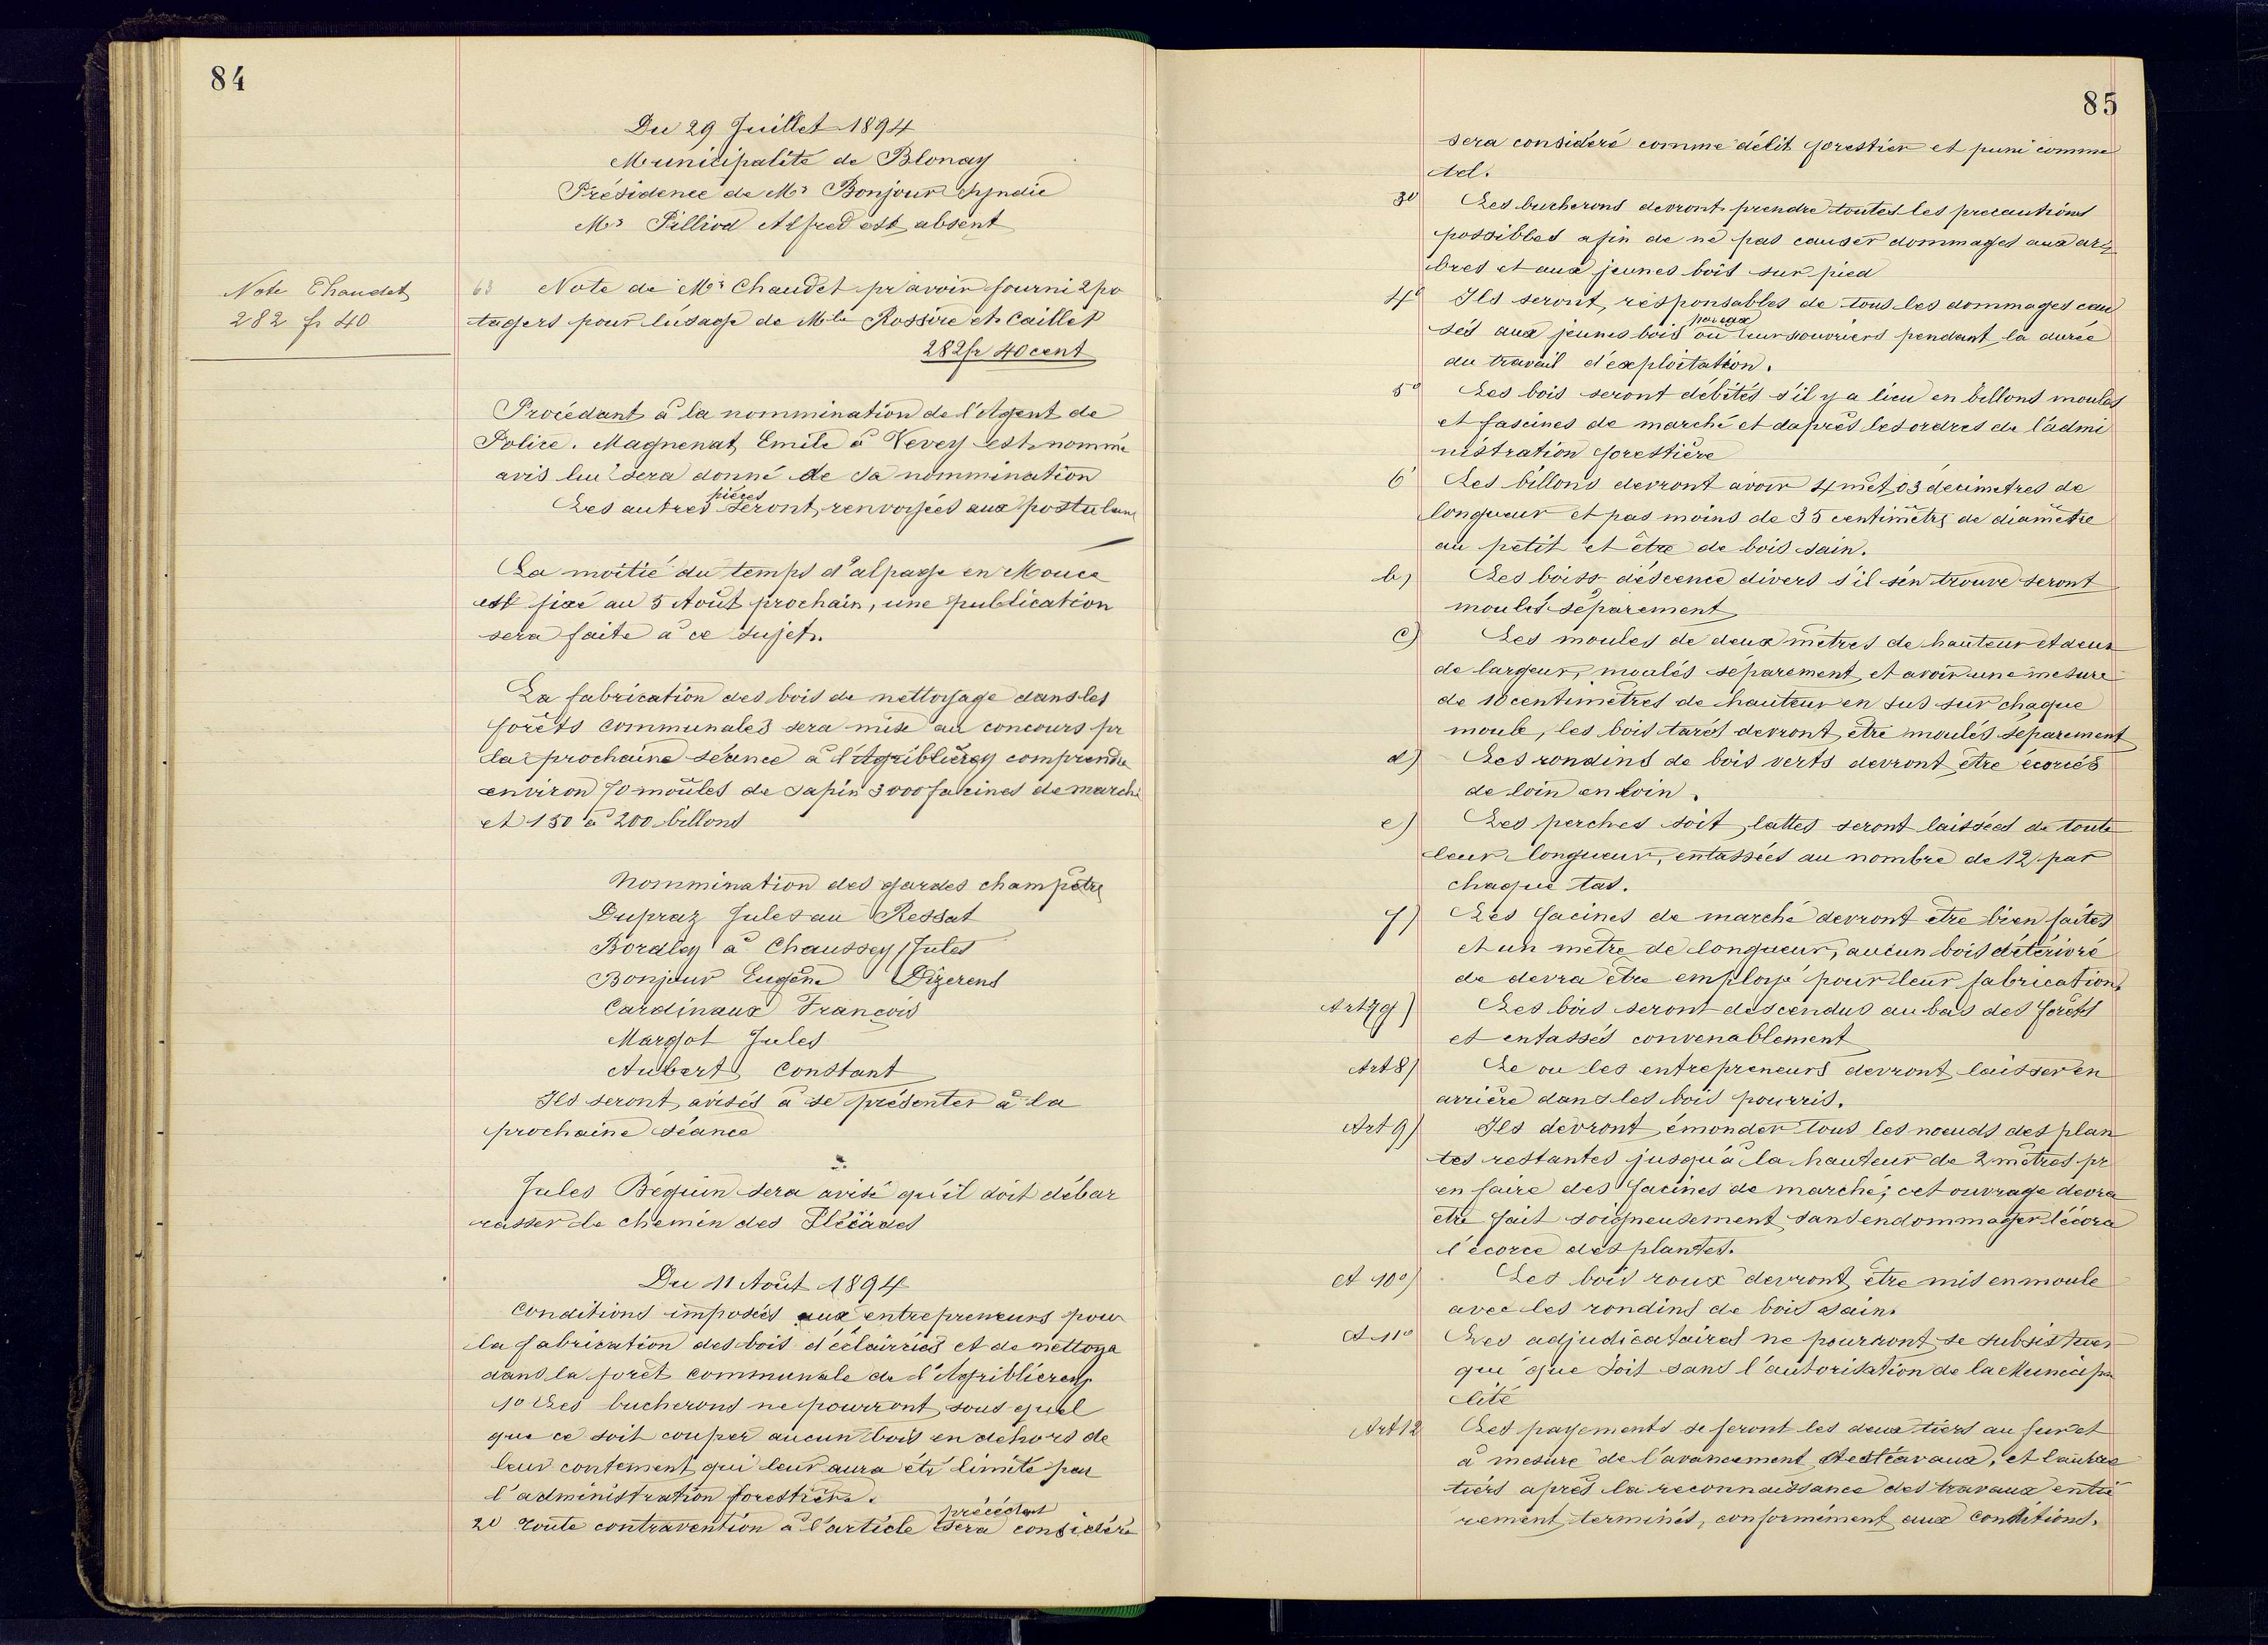 84
Du 29 Juillet 1894
Municipalité de Blonay
Présidence de Mr Bonjour Syndic
Mr Pilliod Alfred est absent
Note Chaudet
282 fr 40
63 Note de Mr Chaudet pr avoir fourni 2 po
tagers pour l'usage de Mlle Rossire et Caillet
282 fr 40 cent
Procédant à la nommination de l'Agent de
Police. Magnenat Emile à Vevey est nommé
avis lui sera donné de sa nommination
Les autres pièces seront renvoyées aux postulans
La moitié du temps d'alpage en Mouce
est fixé au 5 Août prochain, une publication
sera faite à ce sujet.
La fabrication des bois de nettoyage dans les
forêts communales sera mise au concours pr
la prochaine séance à l'Agreblierey comprendre
environ 70 moules de sapin 3000 facines de marché
et 150 à 200 billons
Nommination des gardes champêtre
Dupraz Jules au Ressat
Bordley à Chaussey Jules
Bonjour Eugène Dizerens
Cardinaux François
Margot Jules
Aubert Constant
Ils seront avisés à se présenter à la
prochaine séance
Jules Béguin sera avisé qu'il doit débar
rasser le chemin des Pléiades
Du 11 Août 1894
Conditions imposées aux entrepreneurs pour
la fabrication des bois d'éclairries et de nettoya
dans la forêt communale de l'Agriblierey
1o Les bucherons ne pourront sous quel
que ce soit couper aucun bois en dehors de
leur contement qui leur aura été limité par
l'administration forestière.
2o Toute contravention à l'article précédent sera considéré
85
sera considéré comme délit forestier et puni comme
tel.
3o Les bucherons devront prendre toutes les precautions
possibles afin de ne pas causer dommages aux ar
bres et aux jeunes bois sur pied
4o Ils seront responsables de tous les dommages cau
sés aux jeunes bois par eux ou leurs ouvriers pendant la durée
du travail d'exploitation.
5o Les bois seront débités s'il y a lieu en billons moules
et fascines de marché et daprès les ordres de l'admi
nistration forestière
6 Les billons devront avoir 4 mèt, 03 décimetres de
longueur et pas moins de 35 centimètrs de diamètre
au petit et être de bois sain.
b) Les boiss déscence divers s'il s'en trouve seront
moulés séparement
c) Les moules de deux mètres de hauteur et deux
de largeur, moulés séparement et avoir une mesure
de 10 centimètres de hauteur en sus sur chaque
moule, les bois tarés devront être moulés séparement
d) Les rondins de bois verts devront être écorcés
de loin en loin.
e) Les perches soit lattes seront laissées de toute
leur longueur, entassées au nombre de 12 par
chaque tas.
f) Les facines de marché devront être bien faites
et un mètre de longueur, aucun bois détérioré
de devra être employé pour leur fabrication.
Art 7 g) Les bois seront descendus au bas des forêts
et entassés convenablement
Art 8) Le ou les entrepreneurs devront laisser en
arrière dans les bois pourris.
Art 9) Ils devront émonder tous les noeuds des plan
tes restantes jusqu'à la hauteur de 2 mètres pr
en faire des facines de marché; cet ouvrage devra
etre fait soigneusement sans endommager l'écorce
l'écorce des plantes.
A 10o) Les bois roux devront être mis en moule
avec les rondins de bois sain.
A 11o Les adjudicataires ne pourront se subsistuer
qui que soit sans l'autorisation de la Municipa
lité
Art 12 Les payements se feront les deux tiers au fur et
à mesure de l'avancement des travaux, et l'autre
tiers après la reconnaissance des travaux entiè
rement terminés, conformément aux conditions.